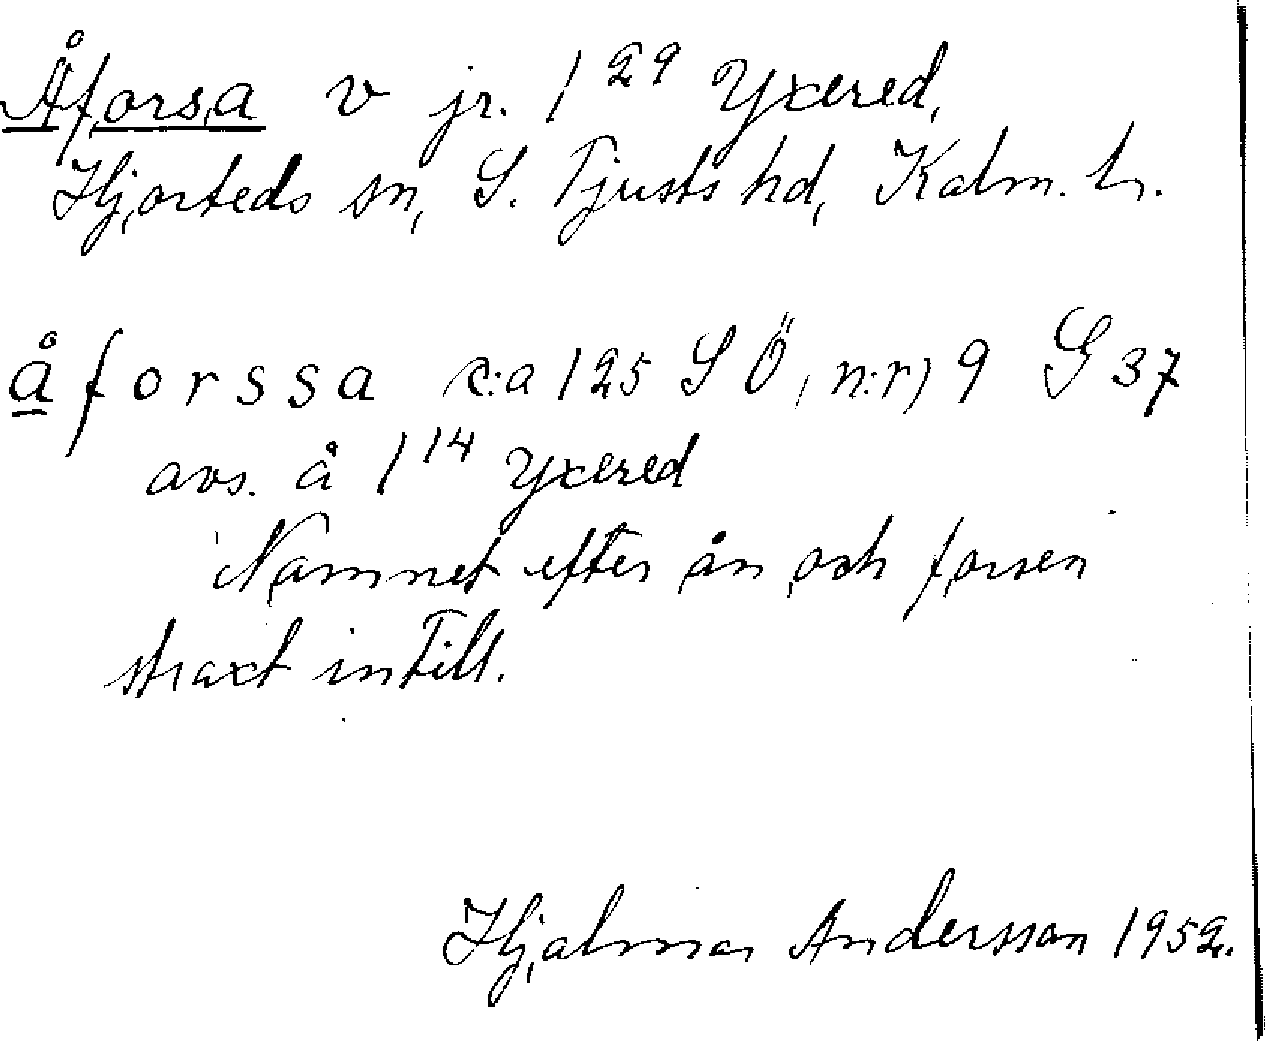 Åforsa v jr. 1²⁹ Yxered,
Hjorteds sn, S. Tjusts hd, Kalm. l.
åforssa c:a 125 S Ö, n:r) 9 G 37
avs. å 1¹⁴ Yxered
Namnet efter ån och forsen
straxt intill.
Hjalmar Andersson 1952.